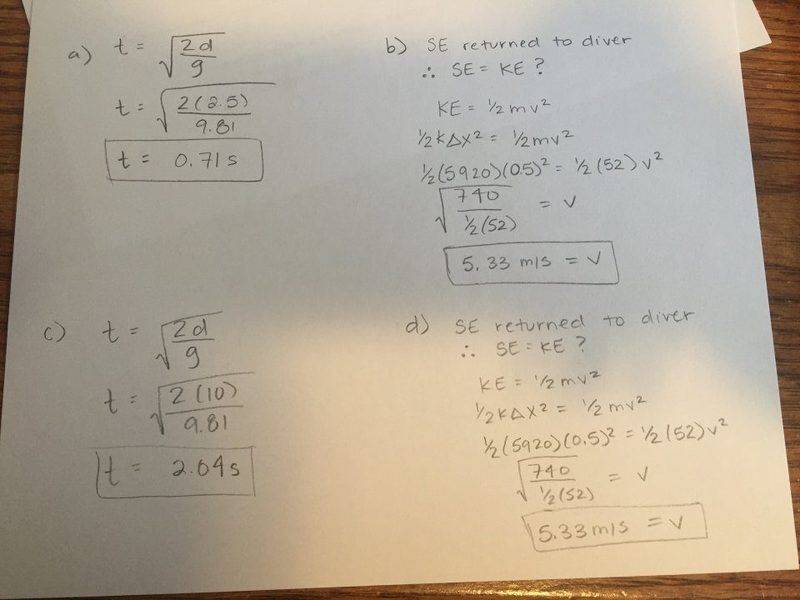 a) t = √(2d/g)
t = √(2(2.5)/9.81)
t = 0.71s
b) SE returned to diver
∴ SE = KE ?
KE = ½mv²
½kΔx² = ½mv²
½(5920)(0.5)² = ½(52)v²
√(740/½(52)) = v
5.33 m/s = v
c) t = √(2d/g)
t = √(2(10)/9.81)
t = 2.04s
d) SE returned to diver
∴ SE = KE ?
KE = ½mv²
½kΔx² = ½mv²
½(5920)(0.5)² = ½(52)v²
√(740/½(52)) = v
5.33 m/s = v